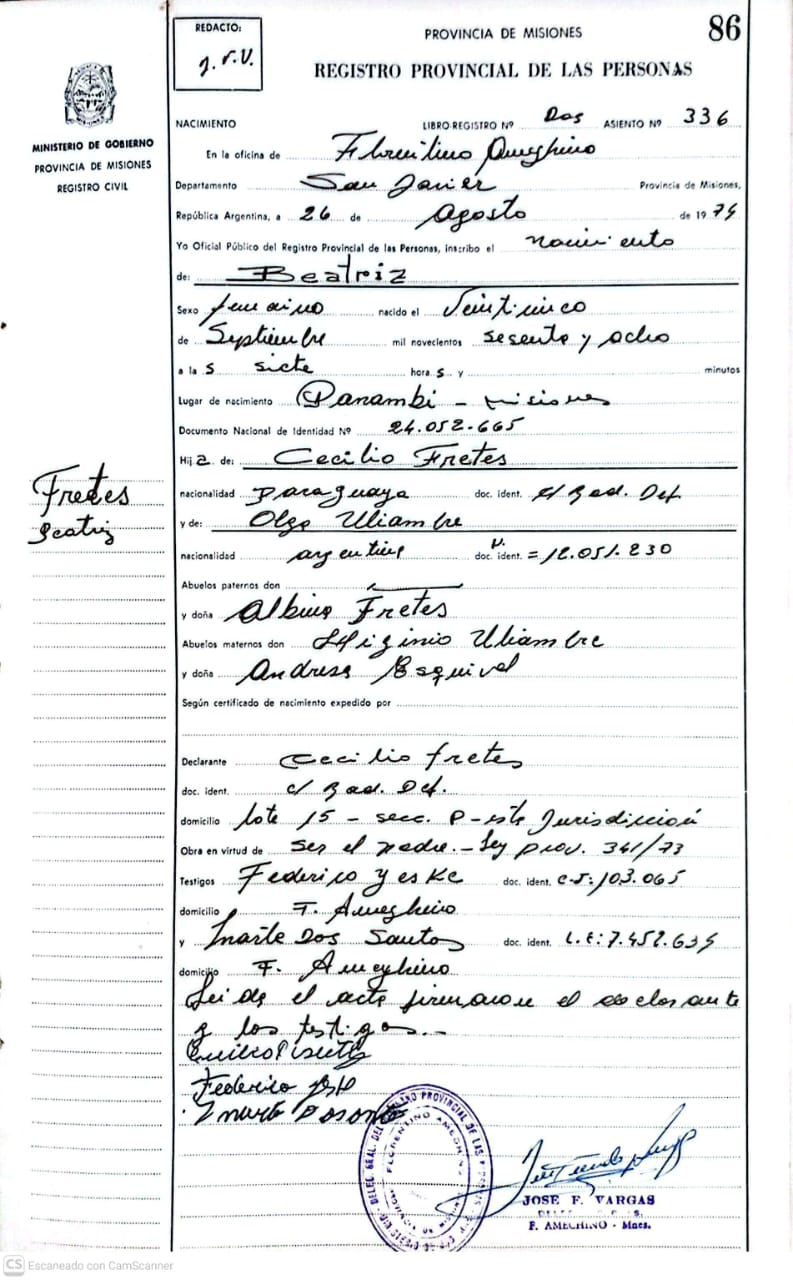 86
REDACTO:
J.F.V.
PROVINCIA DE MISIONES
REGISTRO PROVINCIAL DE LAS PERSONAS
MINISTERIO DE GOBIERNO
PROVINCIA DE MISIONES
REGISTRO CIVIL
NACIMIENTO LIBRO REGISTRO Nº Dos ASIENTO Nº 336
En la oficina de Florentino Ameghino
Departamento San Javier Provincia de Misiones,
República Argentina, a 26 de Agosto de 1974
Yo Oficial Público del Registro Provincial de las Personas, inscribo el nacimiento
de: Beatriz
Sexo femenino nacido el Veinticinco
de Septiembre mil novecientos sesenta y ocho
a la s siete hora s y minutos
Lugar de nacimiento Panambi - Misiones
Documento Nacional de Identidad Nº 24.052.665
Hij a de: Cecilio Fretes
Fretes
Beatriz
nacionalidad Paraguaya doc. ident. c/ Rad. Def.
y de: Olga Uliambre
nacionalidad argentina doc. ident. = 12.051.230
Abuelos paternos don
y doña Albina Fretes
Abuelos maternos don Higinio Uliambre
y doña Andresa Esquivel
Según certificado de nacimiento expedido por
Declarante Cecilio Fretes
doc. ident. c/ Rad. Def.
domicilio lote 15 - secc. P - esta Jurisdicción
Obra en virtud de ser el padre. - Ley prov. 341/73
Testigos Federico Yeske doc. ident. C.I: 103.065
domicilio F. Ameghino
y Inarte Dos Santos doc. ident. L.E: 7.452.634
domicilio F. Ameghino
Leida el acta firman el declarante
y los testigos.-
Federico
JOSE F. VARGAS
F. AMECHINO - Mnes.
CS Escaneado con CamScanner